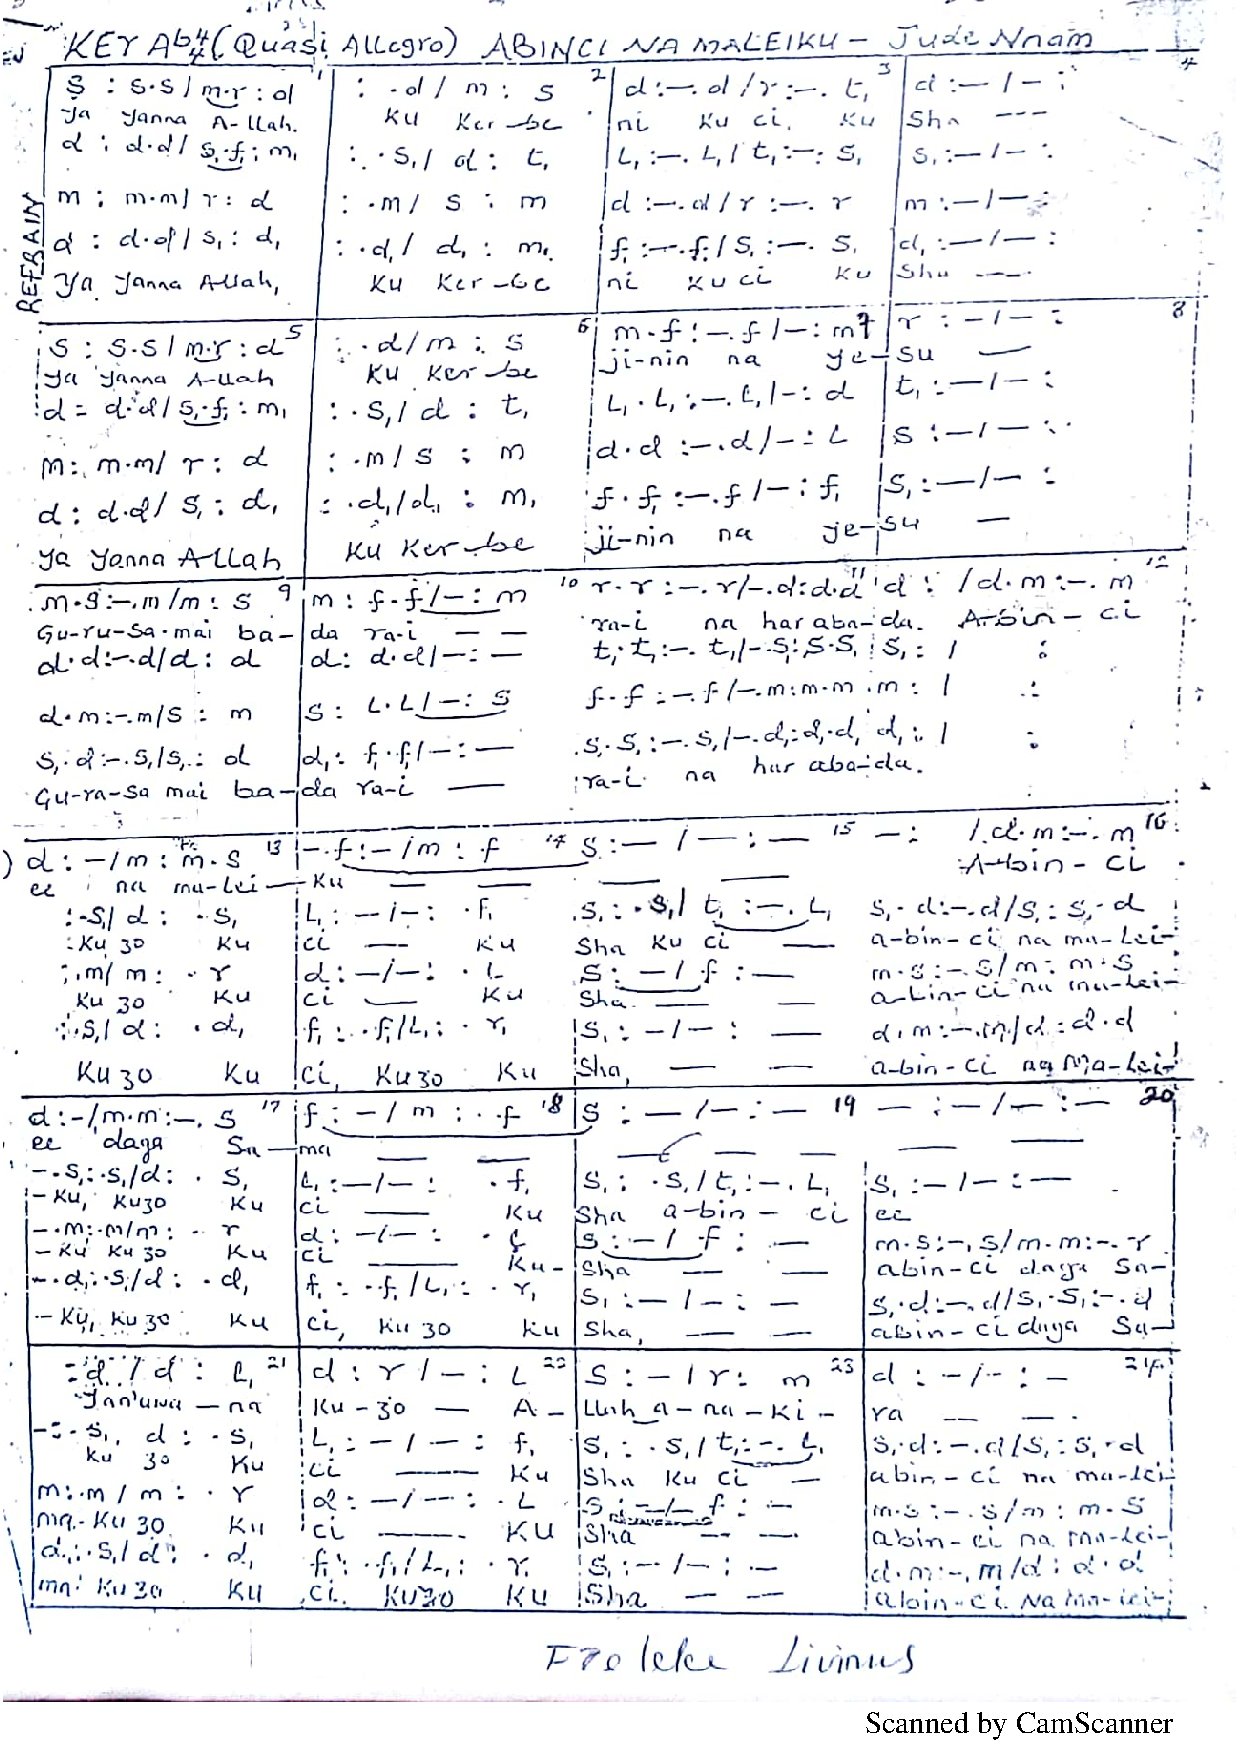 KEY Ab 4/4 (Quasi Allegro) ABINCI NA MALEIKU - Jude Nnam
REFRAIN
1 2 3 4
s : s.s / m.r : d | : .d / m : s | d :—. d / r :—. t, | d :— / — :
Ya Yanna A-llah. Ku Ker-be ni Ku ci. Ku Sha ---
d : d.d / s,.f, : m, | : .s, / d : t, | L, :—. L, / t, :—: s, | s, :— / — :
m : m.m / r : d | : .m / s : m | d :—. d / r :—. r | m :— / — :
d : d.d / s, : d, | : .d, / d, : m, | f, :—. f, / s, :—. s, | d, :— / — :
Ya Yanna A-llah, Ku Ker-be ni Ku ci Ku Sha —
5 6 7 8
s : s.s / m.r : d | : .d / m : s | m.f :—. f / — : m | r : — / — :
Ya Yanna A-llah Ku Ker-be ji-nin na ye-su —
d = d.d / s,.f, : m, | : .s, / d : t, | L, . L, :—. L, / — : d | t, : — / — :
m : m.m / r : d | : .m / s : m | d.d :—. d / — : L | s : — / — :
d : d.d / s, : d, | : .d, / d, : m, | f.f, :—. f / — : f, | s, : — / — :
Ya Yanna A-llah Ku Ker-be ji-nin na ye-su —
9 10 11 12
m.s :—. m / m : s | m : f.f / — : m | r.r :—. r / —.d : d.d | d : / d.m :—. m
Gu-ru-Sa-mai ba-da ra-i — — ra-i na har aba-da. A-bin-ci
d.d :—. d / d : d | d : d.d / — : — | t,.t, :—. t, / —.s, : s.s, | s, : / :
d.m :—. m / s : m | s : L.L / — : s | f.f :—. f / —.m : m.m . m : / :
s,.d :—. s, / s, : d | d, : f,.f, / — : — | s,.s, :—. s, / —.d, : d,.d, d, : / :
Gu-ra-Sa mai ba-da ra-i — ra-i na har aba-da.
13 14 15 16
d : — / m : m.s | —. f : — / m : f | s : — / — : — | — : / .d.m :—. m
ee na ma-Lei—Ku — — — — — A-bin-ci
: .s, / d : .s, | L, : — / — : .f, | s, : .s, / t, :—. L, | s,.d :—. d / s, : s,.d
Ku 30 Ku ci — Ku Sha Ku ci — a-bin-ci na ma-Lei-
: .m / m : .r | d : — / — : .L | s : — / f : — | m.s :—. s / m : m.s
Ku 30 Ku ci — Ku Sha — — a-bin-ci na ma-lei-
: .s, / d : .d, | f, : .f, / L, : .r, | s, : — / — : — | d.m :—. m / d : d.d
Ku 30 Ku ci, Ku 30 Ku Sha, — — a-bin-ci na Ma-Lei-
17 18 19 20
d : — / m.m :—. s | f : — / m : .f | s : — / — : — | — : — / — : —
ee daga Sa-ma — — — — — —
—.s, : .s, / d : .s, | L, : — / — : .f, | s, : .s, / t, :—. L, | s, : — / — : —
- Ku, Ku 30 Ku ci — Ku Sha a-bin-ci ee
—.m : .m / m : .r | d : — / — : | s : — / f : — | m.s :—. s / m.m :—. r
- Ku Ku 30 Ku ci — Ku- Sha — — abin-ci daga Sa-
—.d, : .s, / d : .d, | f, : .f, / L, : .r, | s, : — / — : — | s,.d :—. d / s,.s, :—. d
- Ku, Ku 30 Ku ci, Ku 30 Ku Sha, — — abin-ci daga Sa-
21 22 23 24
: d / d : L, | d : r / — : L | s : — / r : m | d : — / — : —
'Yan'uwa-na Ku-30 — A-llah a-na-Ki-ra — —
— : .s, d : .s, | L, : — / — : f, | s, : .s, / t, :—. L, | s,.d :—. d / s, : s,.d
Ku 30 Ku ci — Ku Sha Ku ci — abin-ci na ma-lei-
m : .m / m : .r | d : — / — : .L | s : — / f : — | m.s :—. s / m : m.s
ma- Ku 30 Ku ci — Ku Sha — — abin-ci na ma-lei-
d, : .s, / d : .d, | f, : .f, / L, : .r, | s, : — / — : — | d.m :—. m / d : d.d
ma' Ku 30 Ku ci. Ku 30 Ku Sha — — abin-ci Na ma-lei-
Livinus
Scanned by CamScanner